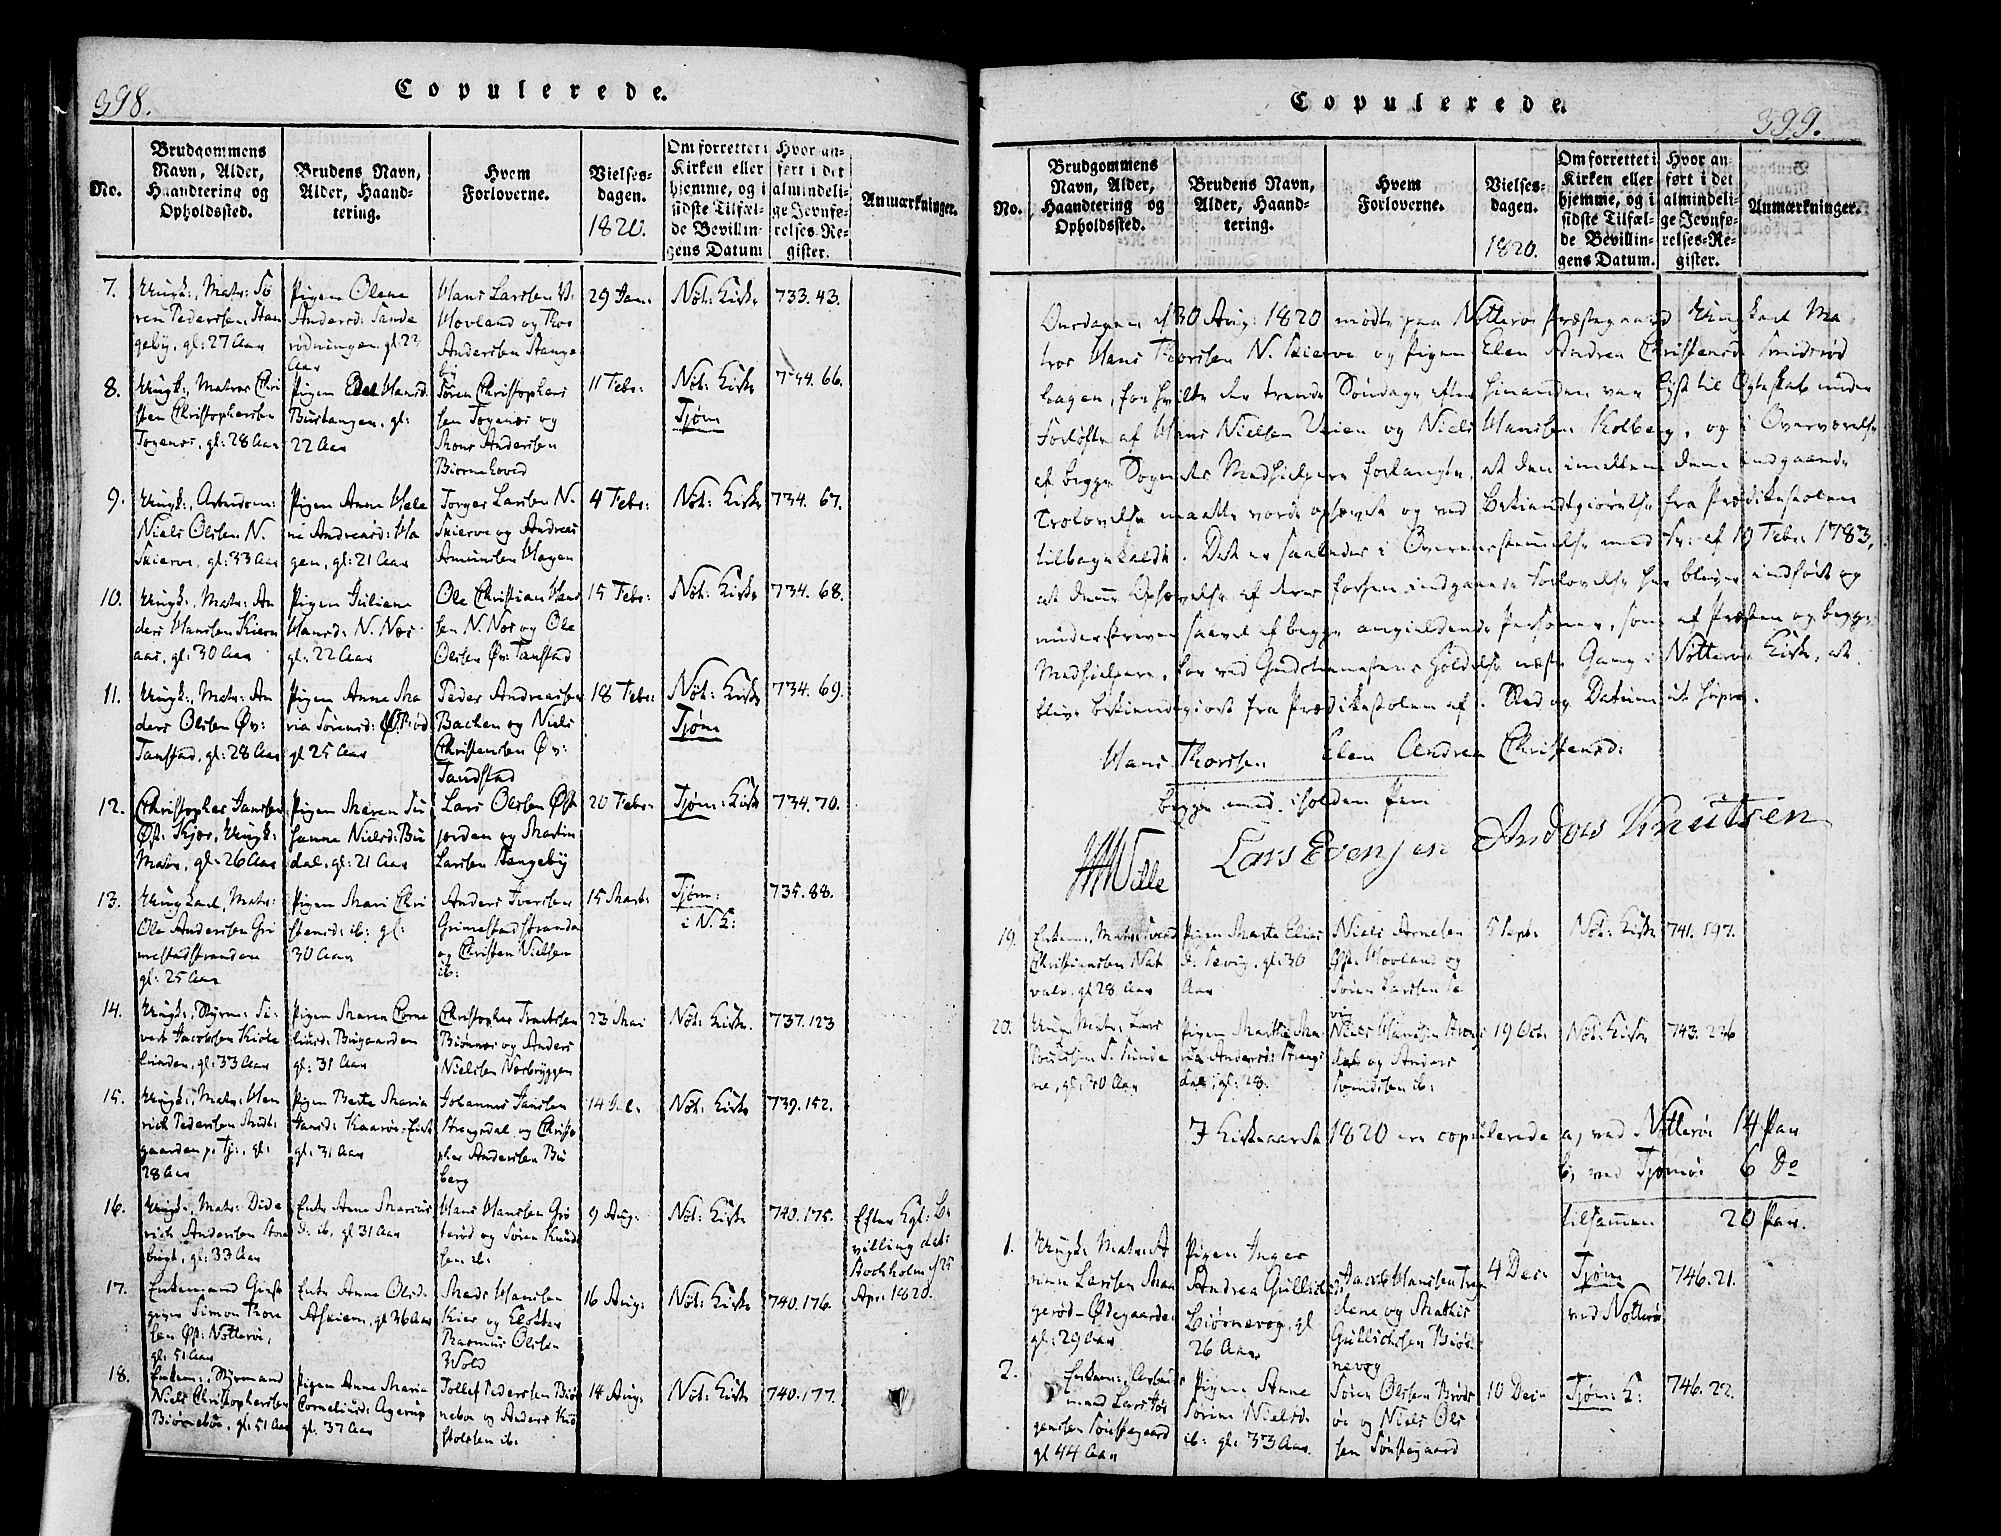 398.
Copulerede.
No.
Brudgommens
Navn, Alder,
Haandtering og
Opholdssted.
Brudens Navn,
Alder, Haand-
tering.
Hvem
Forloverne.
Vielses-
dagen.
1820.
Om forrettet i
Kirken eller
hjemme, og i
sidste Tilfæl-
de Bevillin-
gens Datum
Hvor an-
ført i det
almindeli-
ge Jevnfø-
relses-Re-
gister.
Anmærkninger.
7.
Ungk:, Matr: Sø
ren Pedersen Stan
geby, gl: 27 Aar
Pigen Olene
Andersd: Sande
rødningen gl: 22
Aar
Hans Larsen
Hovland og Thor
Andersen Stange
by
29 Jan:
Nøt: Kirke
733.43.
8.
Ungk:, Matros Chri
sten Christophersen
gl: 28 Aar
Pigen Hansd.
Buebangen, gl:
22 Aar
Søren Christopher
sen og
Thom Andersen
Biørnehoved
11 Febr:
Nøt: Kirke
Tjøm
734.66.
9.
Ungk:, Arbeidsm:
Niels Olsen N.
Skierve, gl: 33 Aar
Pigen Anne Hele
ne Andreasd: Ha
gen, gl: 21 Aar
Torger Larsen N.
Skierve og Andreas
Amundsen Hagen
4 Febr:
Nøt: Kirke
734.67.
10.
Ungk:, Matr: An
ders Hansen Kiern
aas, gl: 30 Aar
Pigen Juliane
Hansd: N. Næs
gl: 22 Aar
Ole Christian Han
sen N. Næs og Ole
Olsen Øv: Tanstad
15 Febr:
Nøt: Kirke
734.68.
11.
Ungk:, Matr: An
ders Olsen Øv:
Tanstad, gl: 28 Aar
Pigen Anne Ma
ria Sørensd:
gl 25 Aar
Peder Andreassen
Bachen og Niels
Christensen Øv:
Tandstad
18 Febr:
Nøt: Kirke
Tjøm
734.69.
12.
Christopher Jansen
Øst: Kjær, Ungk:
Matr, gl: 26 Aar
Pigen Maren Su
sanne Nielsd: Bu
dal, gl: 21 Aar
Lars Olsen Øst
jorden og Martin
Larsen Stangeby
20 Febr:
Tjøm: Kirke
734.70.
13.
Ungkarl, Matr:
Ole Andersen Gri
mestadstranden
gl: 25 Aar
Pigen Mari Chri
stensd: ib: gl:
30 Aar
Anders Iversen
Grimestadstranden
og Christen Nielsen
ib:
15 Mart:
Tjøm:
i N. K:
735.88.
14.
Ungk:, Styrm: Si
vert Jacobsen Kiøle
linden, gl: 33 Aar
Pigen Maren Corne
liusd: Bugaarden
gl: 31 Aar
Christopher Truelsen
Biørnøs og Anders
Nielsen Nørbryggen
23 Mai
Nøt: Kirke.
737.123
15.
Ungk:, Matr: Hen
rich Pedersen Midt
gaarden p: Tj:, gl:
28 Aar
Pigen Berte Maria
Jansd: Kaarøe
gl: 31 Aar
Johannes Jansen
Strengsdal og Christo
pher Andersen Bu
berg
14 Jul:
Nøt: Kirke
739.152.
16.
Ungk:, Matr: Dide
rich Andersen
bugt, gl: 33 Aar
Enke Anne Marcus
d: ib, gl 31 Aar
Hans Hansen Grø
terød og Søren Knud
sen ib:
9 Aug:
Nøt: Kirke
740.175.
Efter Kgl: Be
villing dat:
Stockholm d/25
Apr: 1820.
17.
Enkemand Giest
giver Simon Thore
sen Øst: Nøtterøe,
gl: 51 Aar
Enke Anne Olsd.
gl 36 Aar
Mads Hansen
Kier og Klokker
Rasmus Olsen
Wold
16 Aug:
Nøt: Kirke
740.176.
18.
Enkem:, Styrmand
Niels Christophersen
Biørneboe, gl: 51 Aar
Pigen Anne Maria
Corneliusd: Agerup
gl: 37 Aar
Tollef Pedersen Biør
neboe og Anders Chri
stophsen ib:
14 Aug:
Nøt: Kirke
740.177.
Copulerede.
399.
No.
Brudgommens
Navn, Alder,
Haandtering og
Opholdssted.
Brudens Navn,
Alder, Haand-
tering.
Hvem
Forloverne.
Vielses-
dagen.
1820.
Om forrettet i
Kirken eller
hjemme, og i
sidste Tilfæl-
de Bevillin-
gens Datum.
Hvor an
ført i det
almindeli-
ge Jevnfø-
relses-Re-
gister.
Anmærkninger.
Onsdagen d 30 Aug: 1820 mødte paa Nøtterøe Præstegaard Ungkarl Ma
tros Hans Thorsen N. Skierve og Pigen Elen Andrea Christensd: Smidsrød
hagen, for hvilke der trende Søndage efter hinanden var lyst til Egteskab under
Forløfte af Hans Nielsen Veien og Niels Hansen Kolberg, og i Overværelse
af begge Sognets Medhielpere forlangte, at den imellem dem indgaaede
Trolovelse maatte vorde ophævet og ved Bekiendtgiørelse fra Prædikestolen
tilbagekaldt. Det er saaledes i Overensstemmelse med Fr: af 19 Febr: 1783,
at denne Ophævelse af deres forhen indgaaede Forlovelse her bliver indført og
underskreven saavel af begge angieldende Personer, som af Præsten og begge
Medhielpere, for ved Gudstienestens Holdelse næste Gang i Nøtterøe Kirke, at
blive bekiendtgiort fra Prædikestolen af. Sted og Datum ut supra.
Hans Thorsen Elen Andrea Christensd:
begge med iholden Pen
HHWille Lars Evensen Anders Knutsen
19.
Enkem:, Matr: Svend
Christiansen Nat
vale, gl 28 Aar
Pigen Marte Elias
d: Sevig, gl: 30
Aar
Niels Arnesen
Øst: Hovland og
Søren Larsen Se
vig
5 Sept:
Nøt: Kirke
741.197.
20.
Ung: Matr: Lars
Poulsen S: Sunde
ne, gl: 30 Aar
Pigen Marthe Ma
ria Andersd: Strengs
dal, gl: 28.
Niels Hansen Strengs
dal og Anders
Svendsen ib:
19 Oct:
Nøt: Kirke
743.236
I Kirkeaaret 1820 ere copulerede a, ved Nøtterøe 14 Par
b, ved Tjømøe 6 Do
tilsammen 20 Par.
1.
Ungk: Matr: A
nun Larsen Man
gerød-Ødegaarden
gl: 29 Aar
Pigen Inger
Andrea Gullichsd:
Biørnevog, gl
26 Aar
Jacob Hansen
dene og Mathis
Gullichsen Biør
nevog
4 Decr
Tjøm
ved Nøtterø
746.21.
2.
Enkem:, Arbeids
mand Lars Jør
gensen Sønstegaard
gl 44 Aar
Pigen Anne
Sørine Nielsd.
ib: gl: 33 Aar
Søren Olsen Brøds
øe og Niels Ols
sen Sønstegaard
10 Decr
Tjøm: K:
746.22.